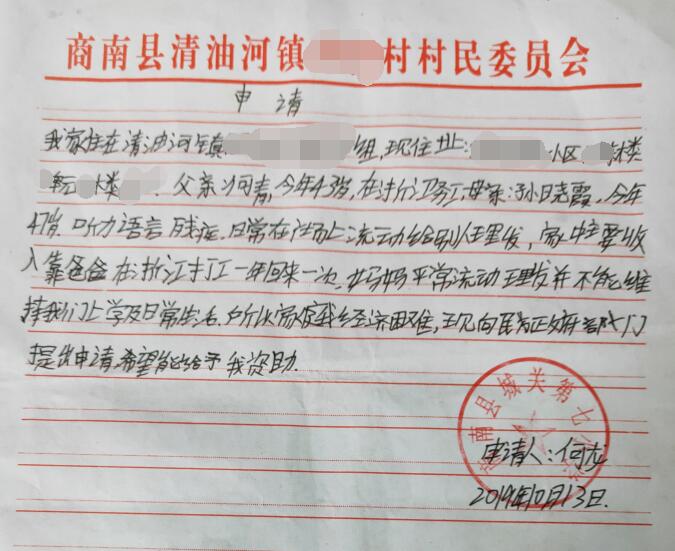 商南县清油河镇 村村民委员会
申请
我家住在清油河镇 组,现住址: 小区 楼
单元 楼 父亲:何青,今年43岁,在浙江务工,母亲:孙晓霞,今年
47岁.听力语言残疾.日常在 上流动给别人理发,家中主要收
入靠爸爸在浙江打工一年回来一次,妈妈平常流动理发并不能维
持我们上学及日常生活.所以家庭 经济困难,现向民政政府部门
提出申请.希望能给予我资助.
商南县城关第七小学
申请人:何龙
2019年10月13日.